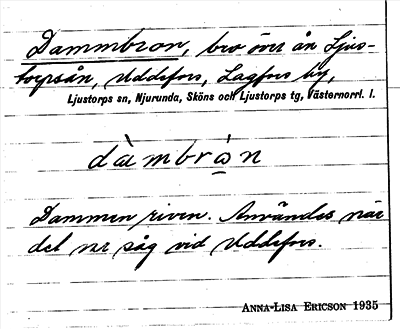 Dammbron, bro över ån Ljus-
torpsån, Uddefors, Lagfors by,
Ljustorps sn, Njurunda, Sköns och Ljustorps tg, Västernorrl. l.
dàmbrό̠n
Dammen riven. Användes när
det var såg vid Uddefors.
ANNA-LISA ERICSON 1935